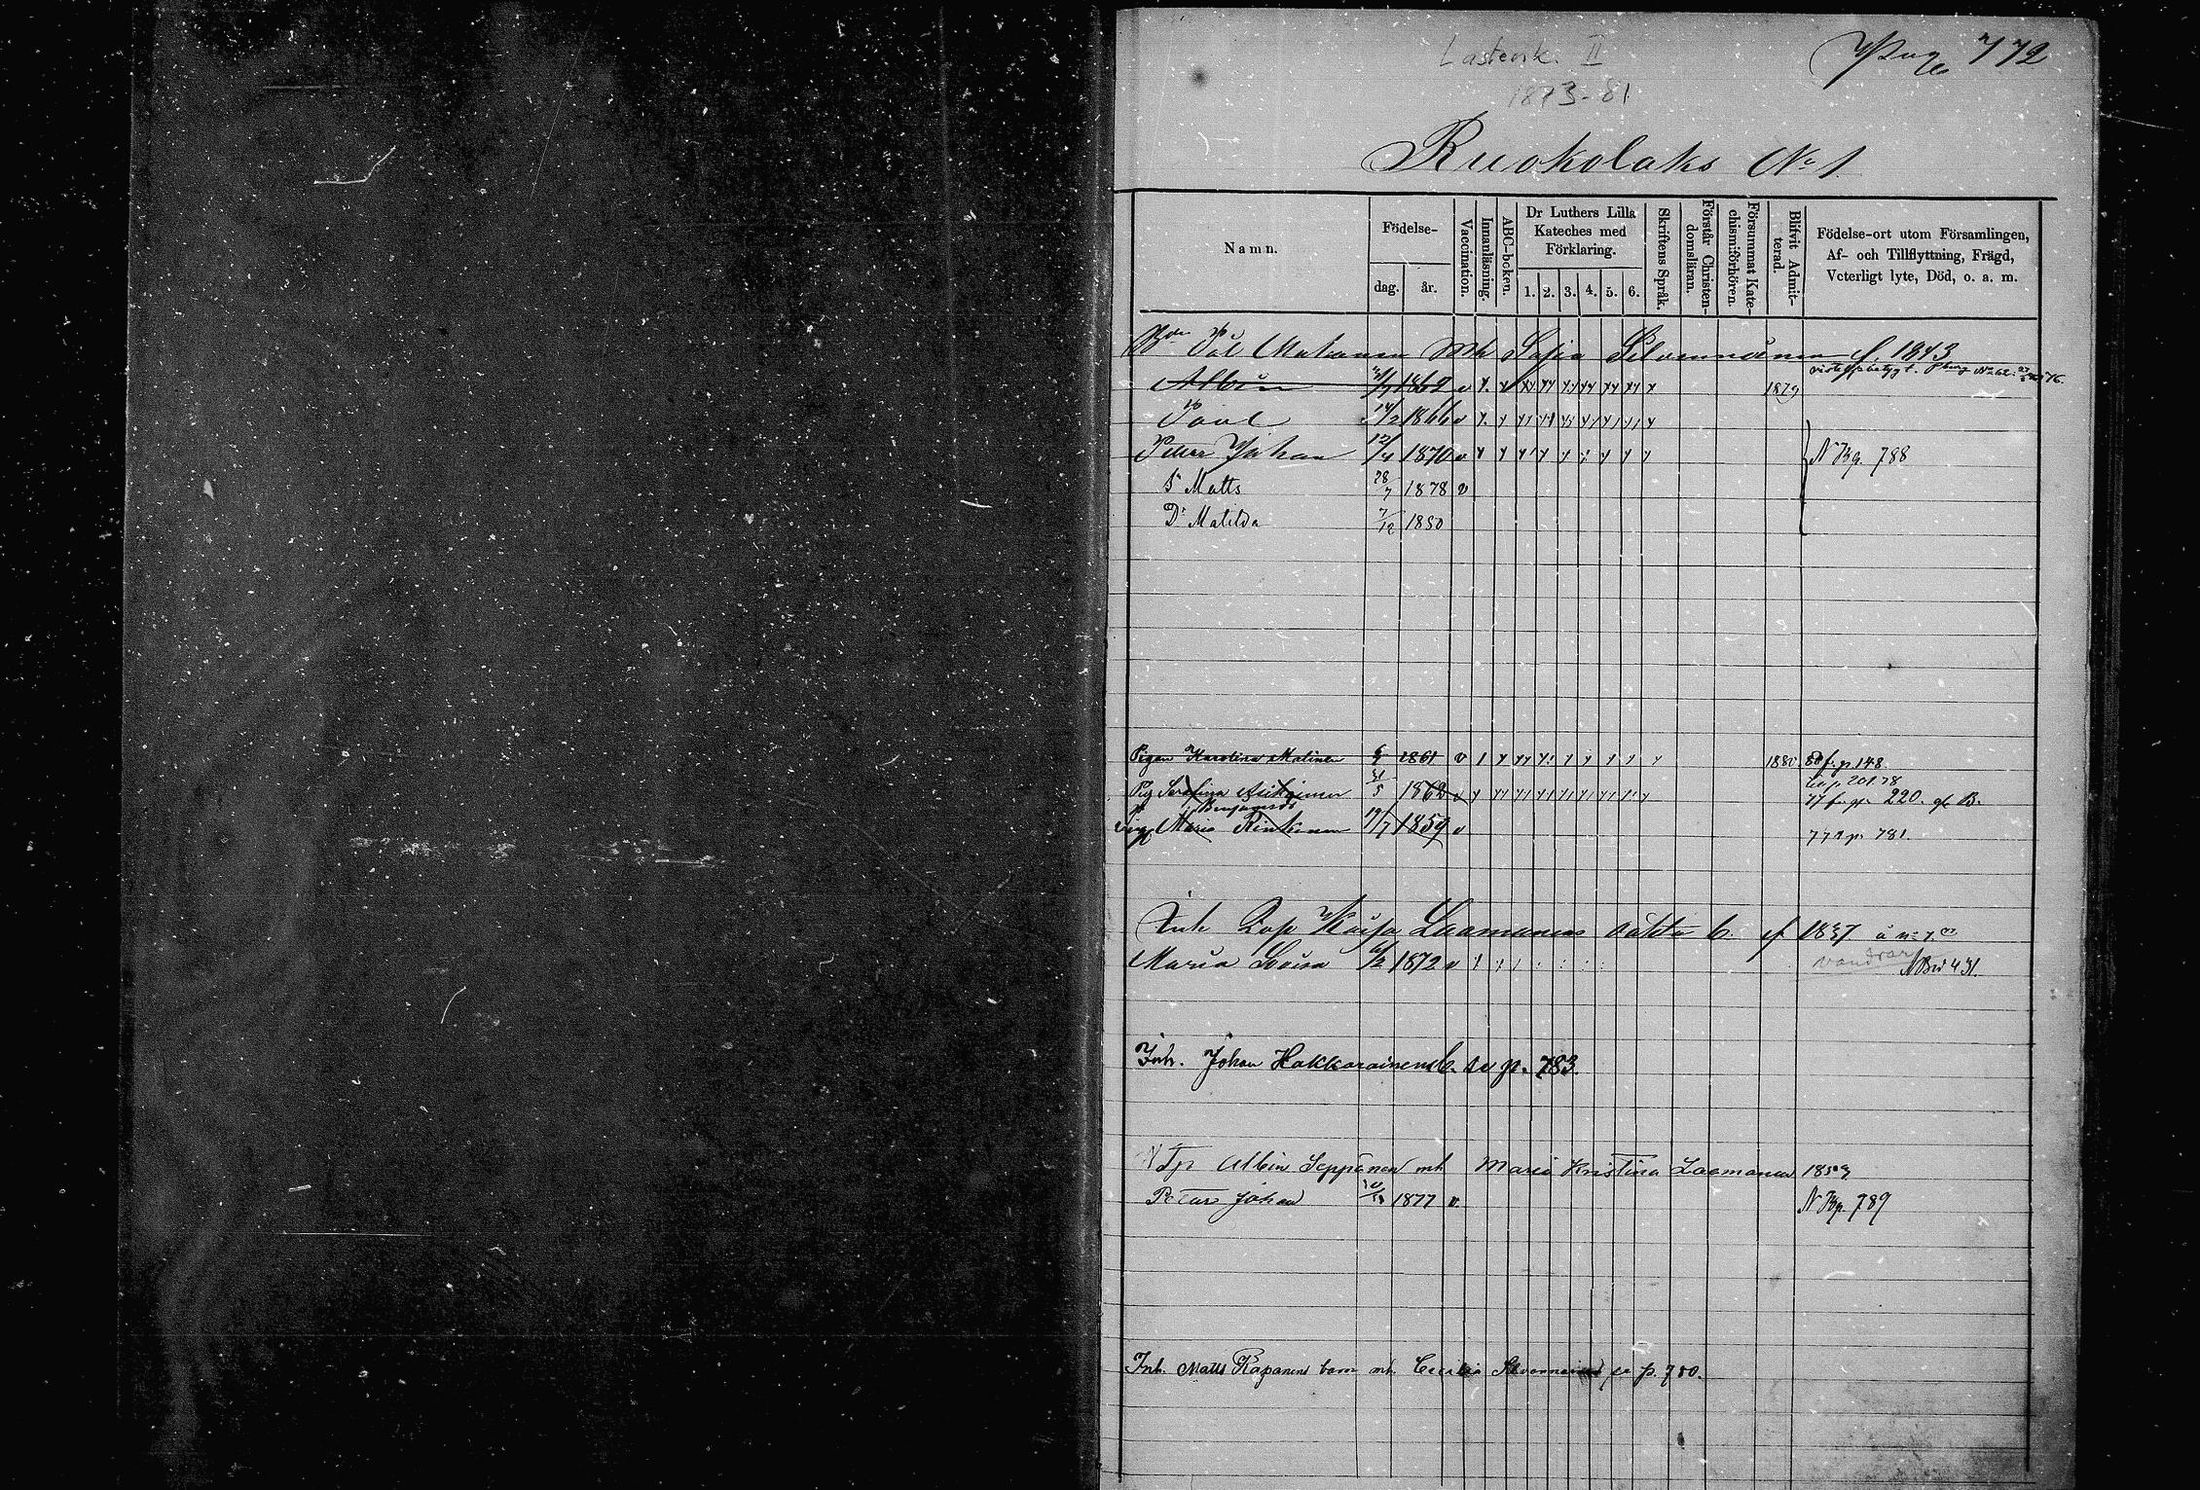 Lastenk. II
Pag 772
1873-81
Ruokolaks No 1.
Namn.
Födelse-
dag.
år.
Vaccination.
Innanläsning.
ABC-boken.
Dr Luthers Lilla Kateches med Förklaring.
1. 2. 3. 4. 5. 6.
Skriftens Språk.
Förstår Christen-domsläran.
Försummat Kate-chismiförhören.
Blifvit Admit-terad.
Födelse-ort utom Församlingen,
Af- och Tillflyttning, Frägd,
Veterligt lyte, Död, o. a. m.
Pål Matanen Mh Sofia Silvennoinen f. 1843
Albin 1862 v 1879
Påul 14/2 1866 v
Petter Johan 12/4 1870 v N Bg. 788
S. Matts 28/7 1878 v
Dr Matilda 7/12 1880
Pigan Karolina Malinen 1861 v 1880 p 148
Pig Serafina 31/5 1862 v 220.
Benjamsdr
Maria Rintanen 17/7 1859 v 77 p. 781.
Inh Kaisa Laamanens oäkta b. f 1837
Maria Lovisa 1872 v vandrar
431.
Inh. Johan Hakkarainens b. se p. 783.
Albin Seppänen mh Maria Kristina Laamanen
Petter Johan 1877 v. N Bg. 789
Inh. Matts Rapanens barn mh. Cecilia Silvennoinen se p. 780.